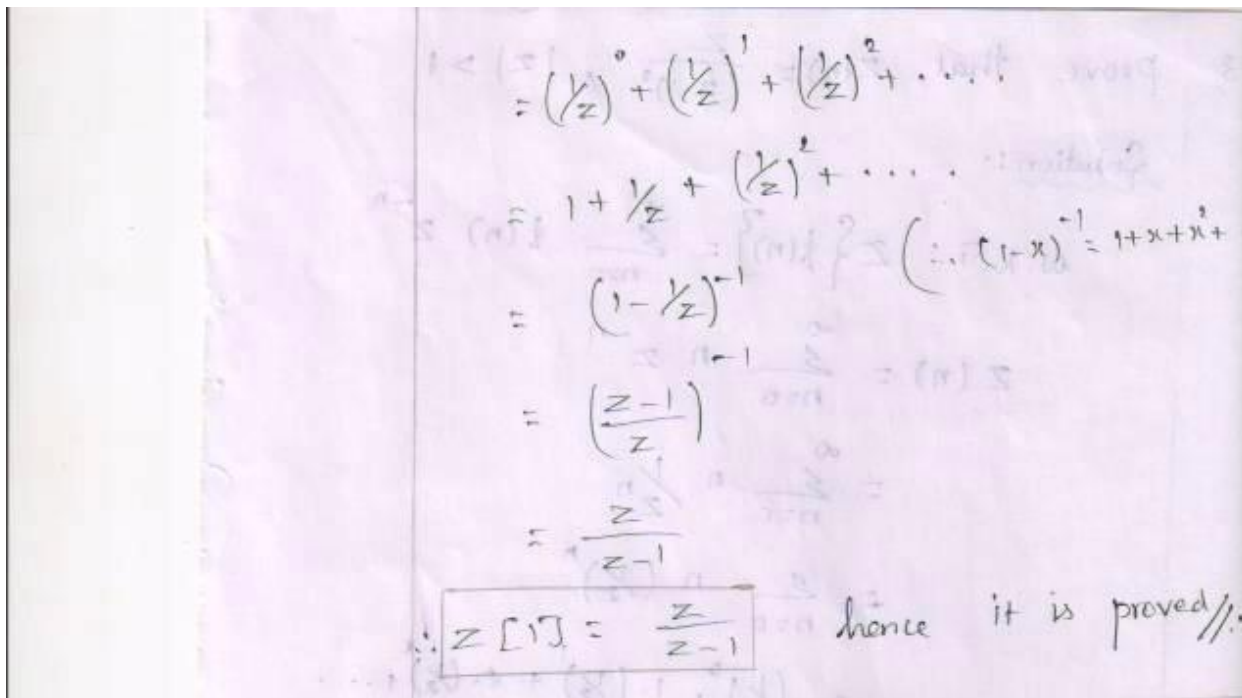 = (1/z)^0 + (1/z)^1 + (1/z)^2 + ....
1 + 1/z + (1/z)^2 + ....
(∴ (1-x)^-1 = 1+x+x^2+
= (1 - 1/z)^-1
= ((z-1)/z)^-1
= z/(z-1)
∴ Z[1] = z/(z-1) hence it is proved//.